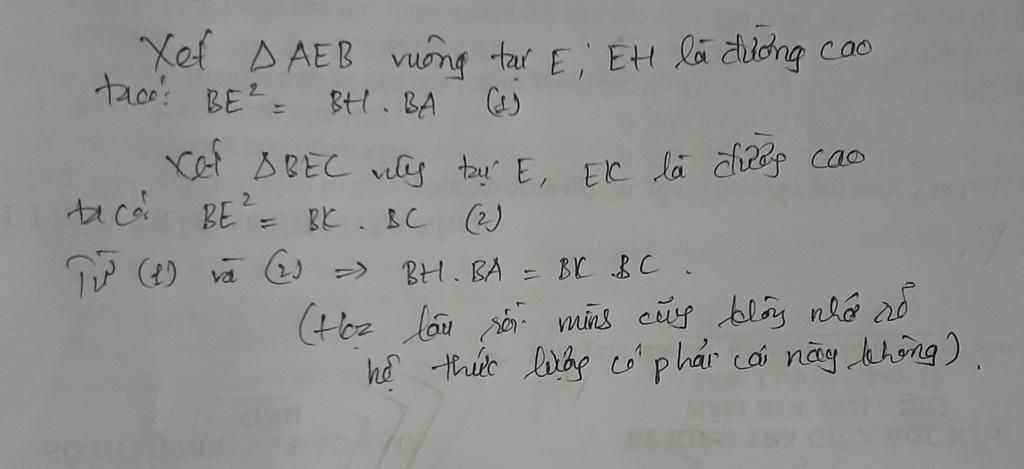 Xét △AEB vuông tại E, EH là đường cao
ta có: BE² = BH . BA (1)
Xét △BEC vuông tại E, EK là đường cao
ta có: BE² = BK . BC (2)
Từ (1) và (2) => BH.BA = BK.BC.
(Học lâu rồi mình cũng không nhớ rõ
hệ thức lượng có phải cái này không).